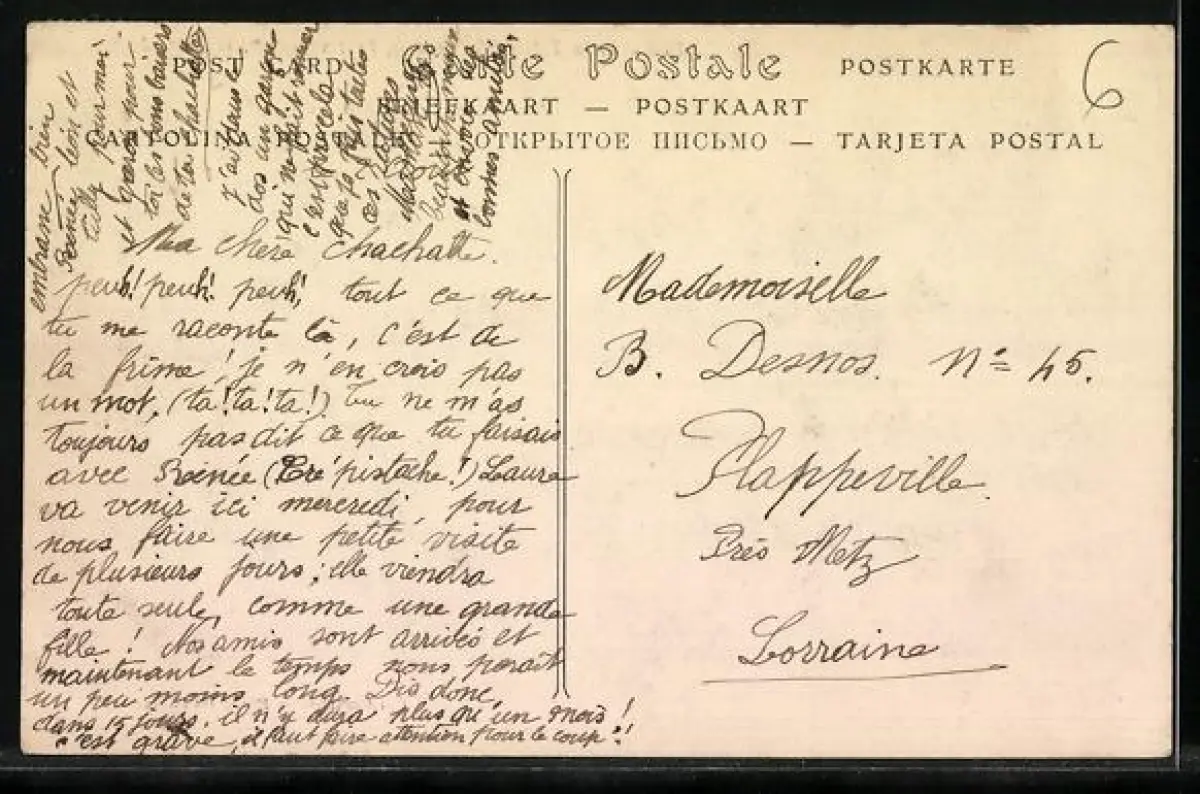 POST CARD Carte Postale POSTKARTE
BRIEFKAART — POSTKAART
CARTOLINA POSTALE — ОТКРЫТОЕ ПИСЬМО — TARJETA POSTAL
6
Ma chère Chachatte.
peuh! peuh! peuh! tout ce que
tu me raconte là, c'est de
la frime! je n'en crois pas
un mot, (ta! ta! ta!) Tu ne m'as
toujours pas dit ce que tu faisais
avec Reinée (Cré pistache!) Laure
va venir ici mercredi, pour
nous faire une petite visite
de plusieurs jours; elle viendra
toute seule, comme une grande
fille! Nos amis sont arrivés et
maintenant le temps nous paraît
un peu moins long. Dis donc,
dans 15 jours, il n'y aura plus qu'un mois!
c'est grave, il faut faire attention pour le coup!!
embrasse bien
Reinée, Léon et
pour moi
et garde pour
toi les bons baisers
de ta chachatte
Mademoiselle
B. Desnos. N° 45.
Plappeville
Près Metz
Lorraine